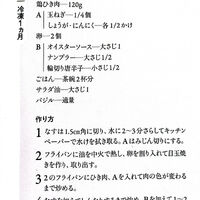 冷凍1ヵ月
鶏ひき肉…120g
A 玉ねぎ…1/4個
しょうが・にんにく…各1/2かけ
卵…2個
B オイスターソース…大さじ1
ナンプラー…大さじ1
輪切り唐辛子…小さじ1
ごはん…茶碗2杯分
サラダ油…大さじ1
バジル…適量
作り方
1 なすは1.5cm角に切り、水に2〜3分さらしてキッチン
ペーパーで水けを拭き取る。Aはみじん切りにする。
2 フライパンに油を中火で熱し、卵を割り入れて目玉焼
きを作り、取り出す。
3 2のフライパンにひき肉、Aを入れて肉の色が変わる
まで炒める。